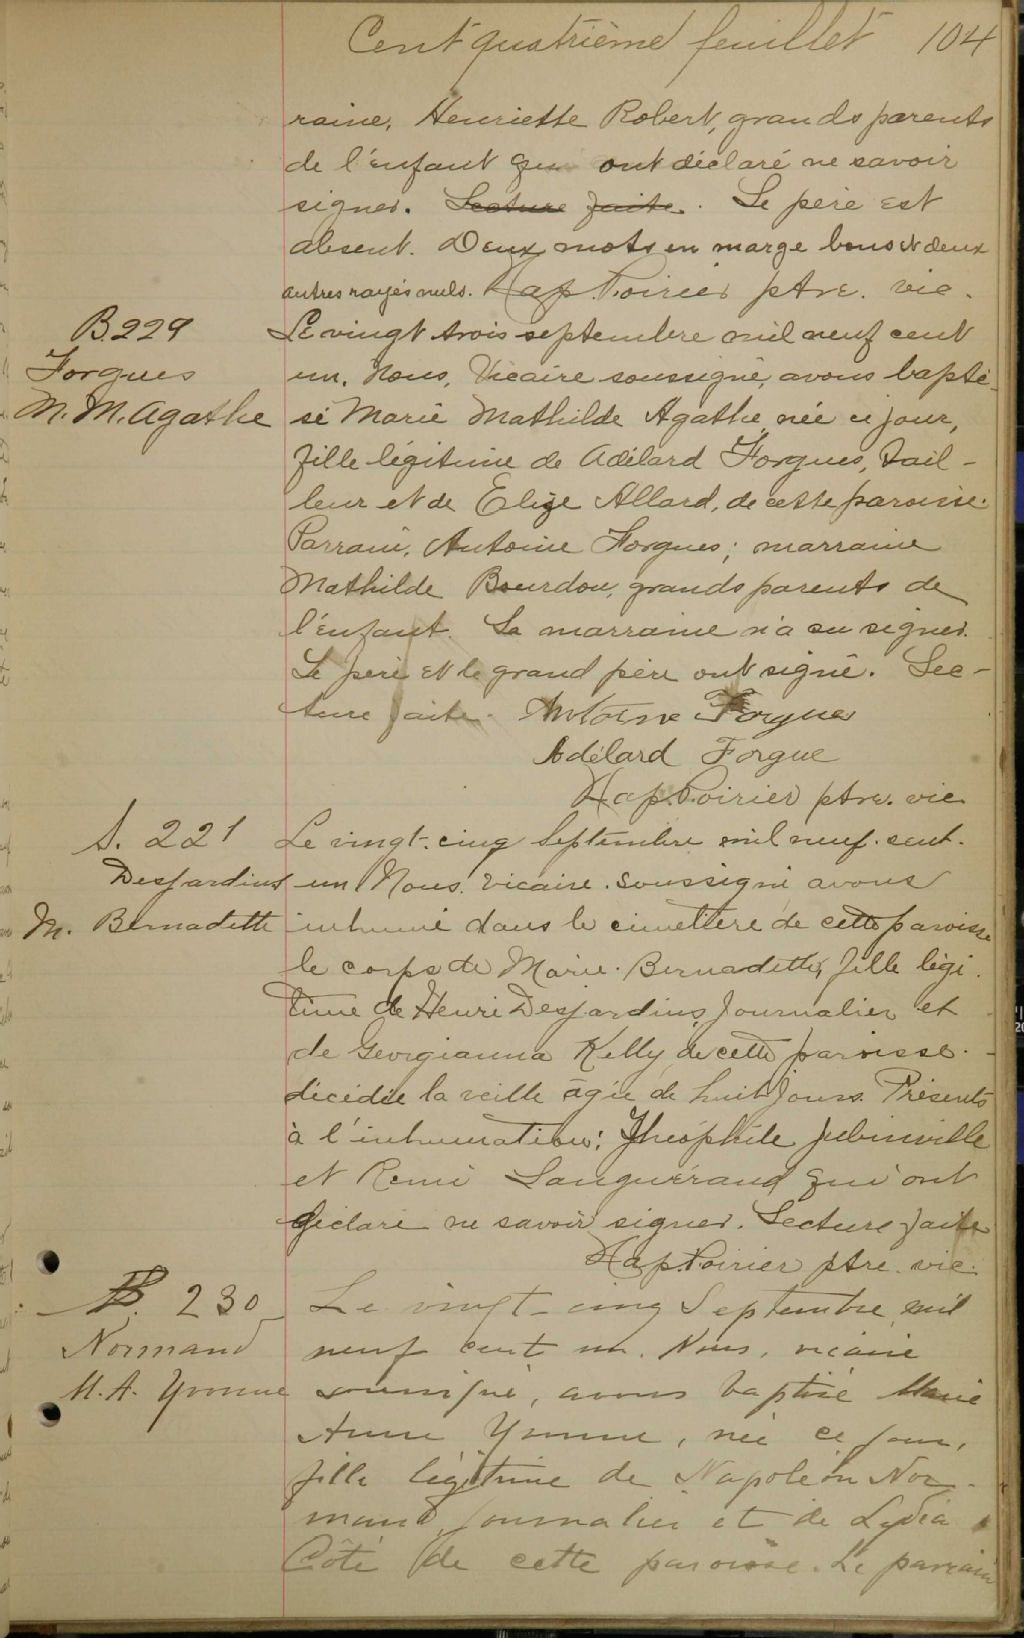 Cent quatrième feuillet 104
raine, Henriette Robert, grands parents
de l'enfant qui ont déclaré ne savoir
signer. Lecture faite. Le père est
absent. Deux mots en marge bons et deux
autres rayés nuls. Nap. Poirier ptre. vic.
B. 229
Forgues
M. M. Agathe
Le vingt trois septembre mil neuf cent
un, Nous, Vicaire soussigné, avons bapti-
sé Marie Mathilde Agathe, née ce jour,
fille légitime de Adélard Forgues, tail-
leur et de Elize Allard, de cette paroisse.
Parrain, Antoine Forgues; marraine
Mathilde Bourdon, grands parents de
l'enfant. La marraine n'a su signer.
Le père et le grand père ont signé. Lec-
ture faite. Antoine Forgues
Adélard Forgue
Nap. Poirier ptre. vic.
S. 221
Desjardins
M. Bernadette
Le vingt-cinq Septembre mil neuf-cent-
un Nous. vicaire. soussigné avons
inhumé dans le cimetière de cette paroisse
le corps de Marie-Bernadette, fille légi-
time de Henri Desjardins, Journalier et
de Georgianna Kelly, de cette paroisse.-
décédée la veille âgée de huit jours. Présents
à l'inhumation: Théophile Jubinville
et Remi Languérand qui ont
déclaré ne savoir signer. Lecture faite
Nap. Poirier ptre. vic.
B. 230
Normand
M. A. Yvonne
Le vingt-cinq Septembre mil
neuf cent un. Nous, vicaire
soussigné, avons baptisé Marie
Anne Yvonne, née ce jour,
fille légitime de Napoléon Nor-
mand, journalier et de Lydia
Côté de cette paroisse. Le parrain